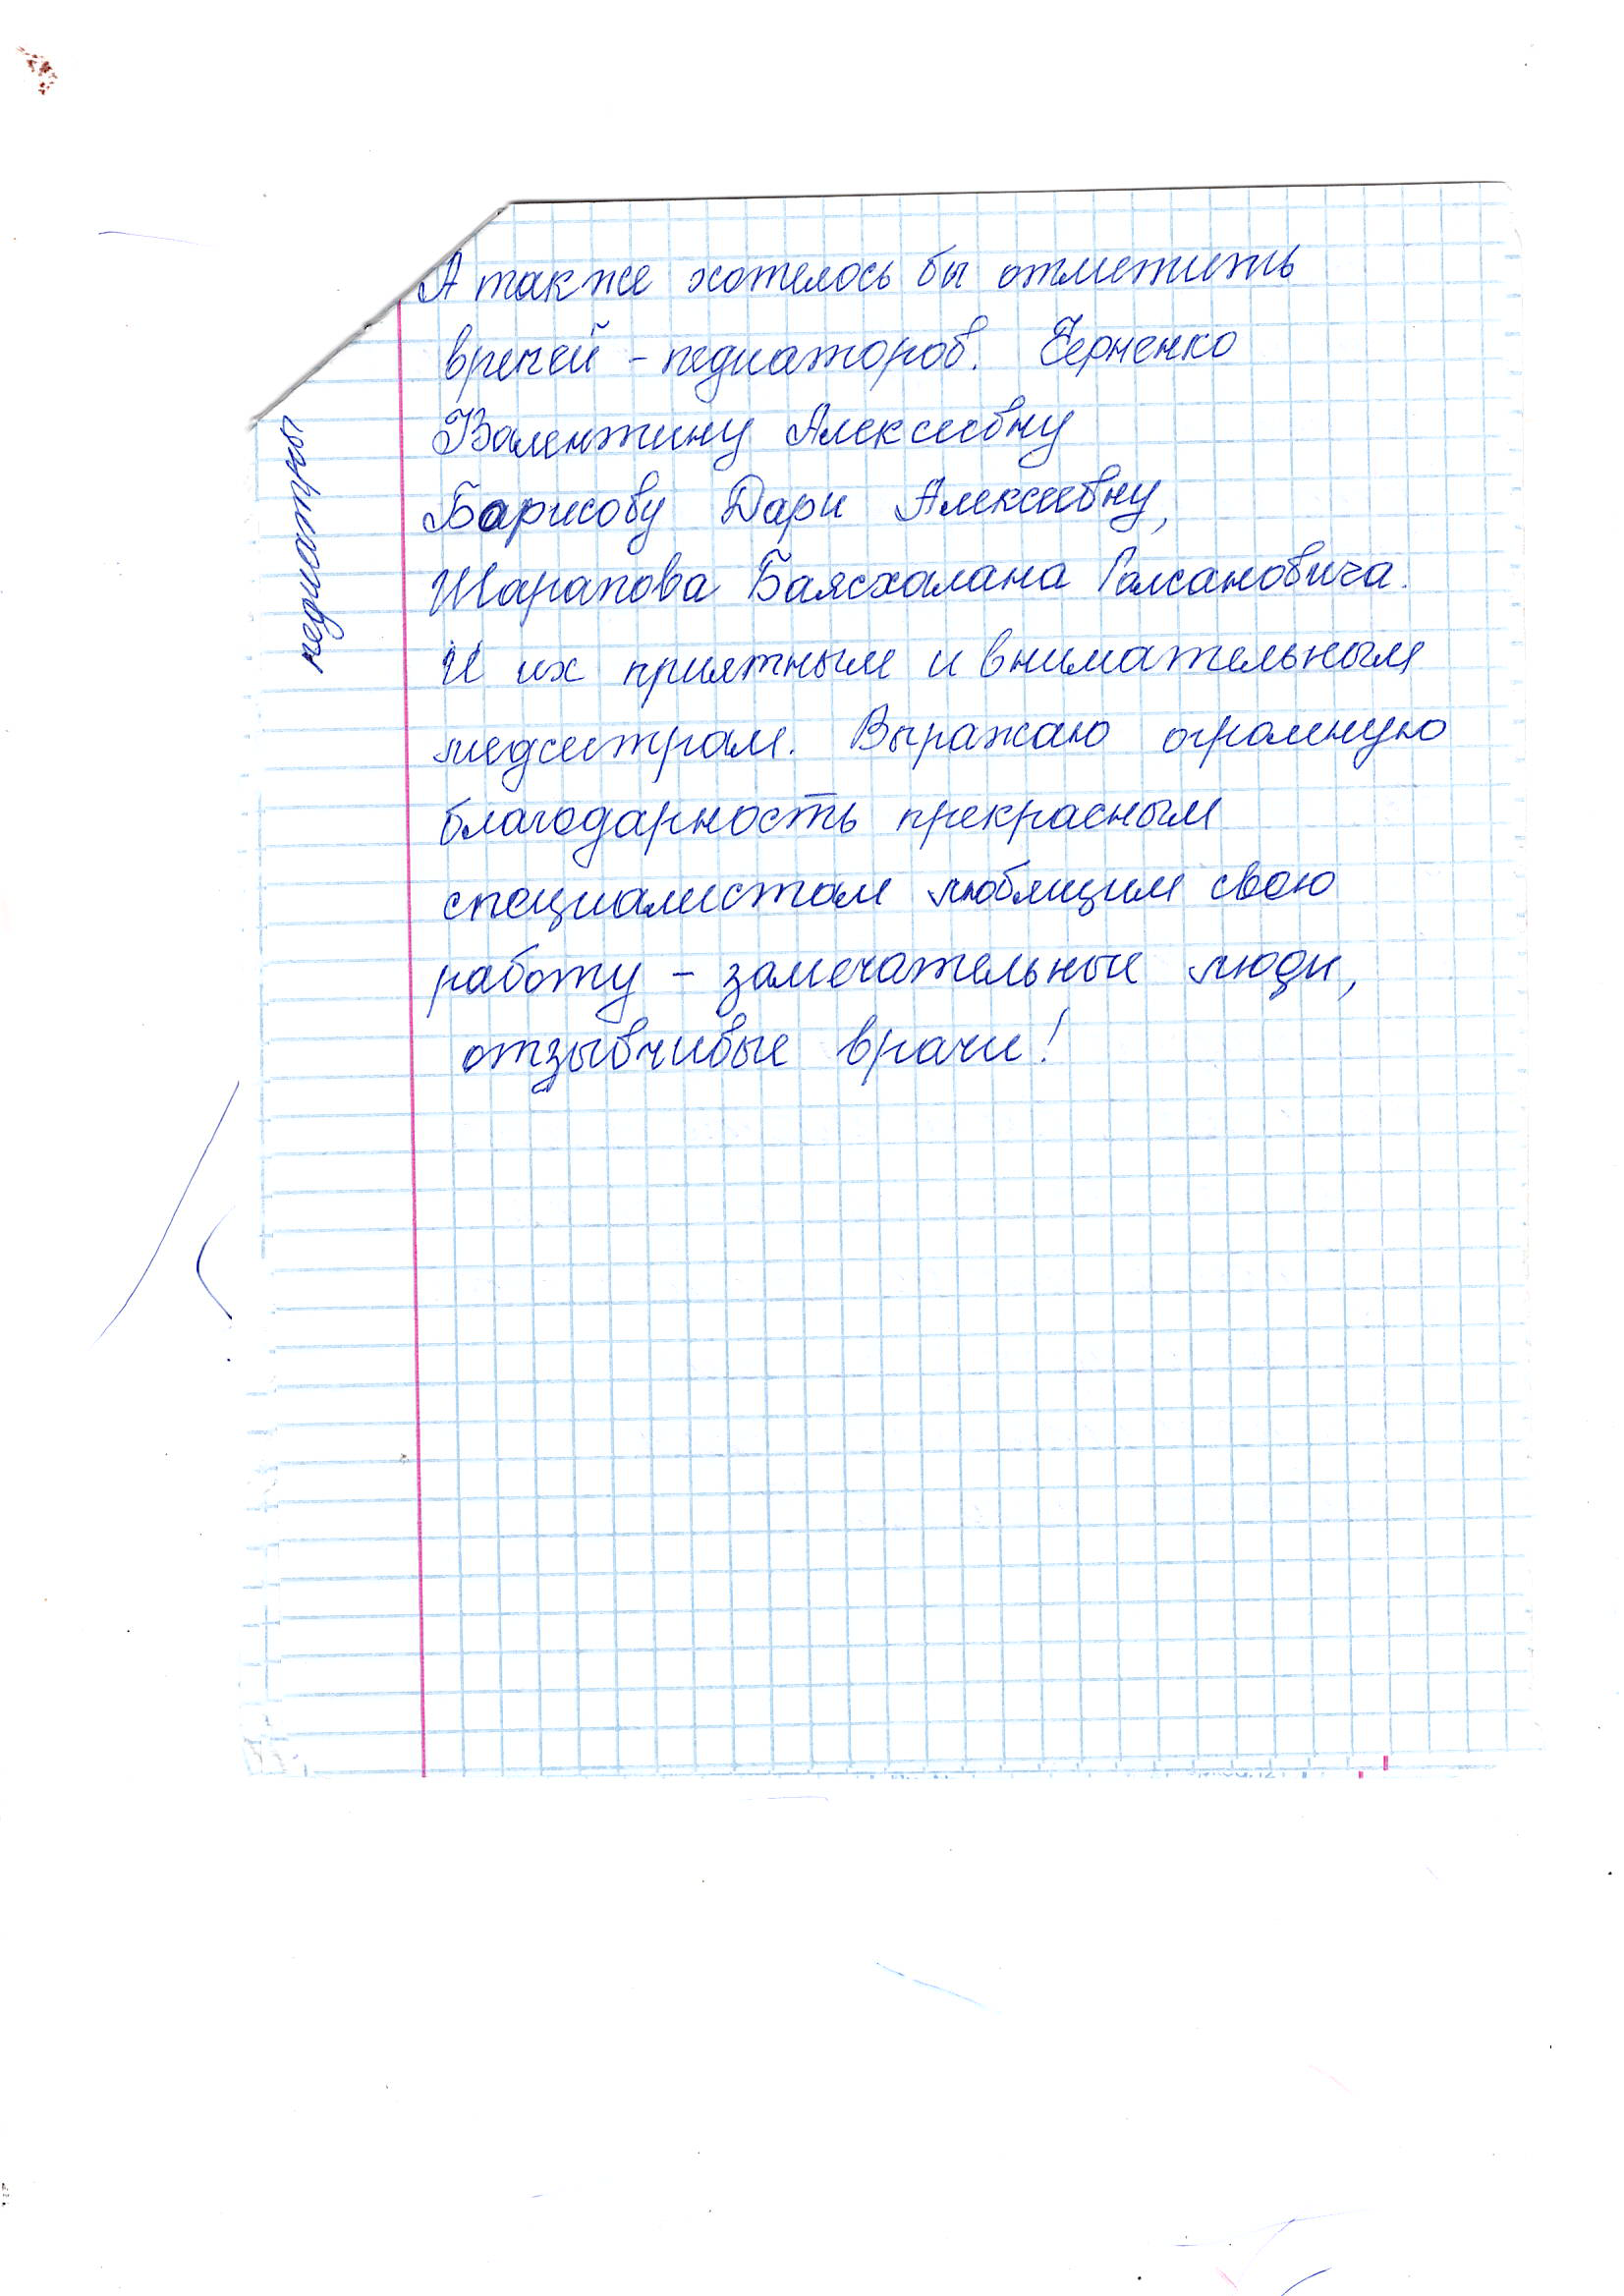 А также хотелось бы отметить
врачей - педиаторов. Черненко
Валентину Алексеевну
Борисову Дари Алексеевну,
Шарапова Баясхалана Галсановича.
И их приятным и внимательным
медсестрам. Выражаю огромную
благодарность прекрасным
специалистам любящим свою
работу - замечательные люди,
отзывчивые врачи!
педиатры